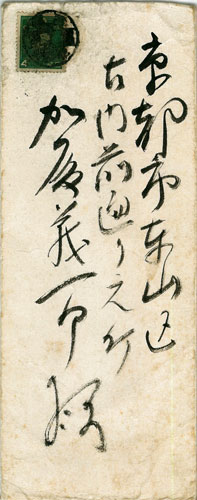 京都市東山区
古門前通り元町
加藤義一郎様